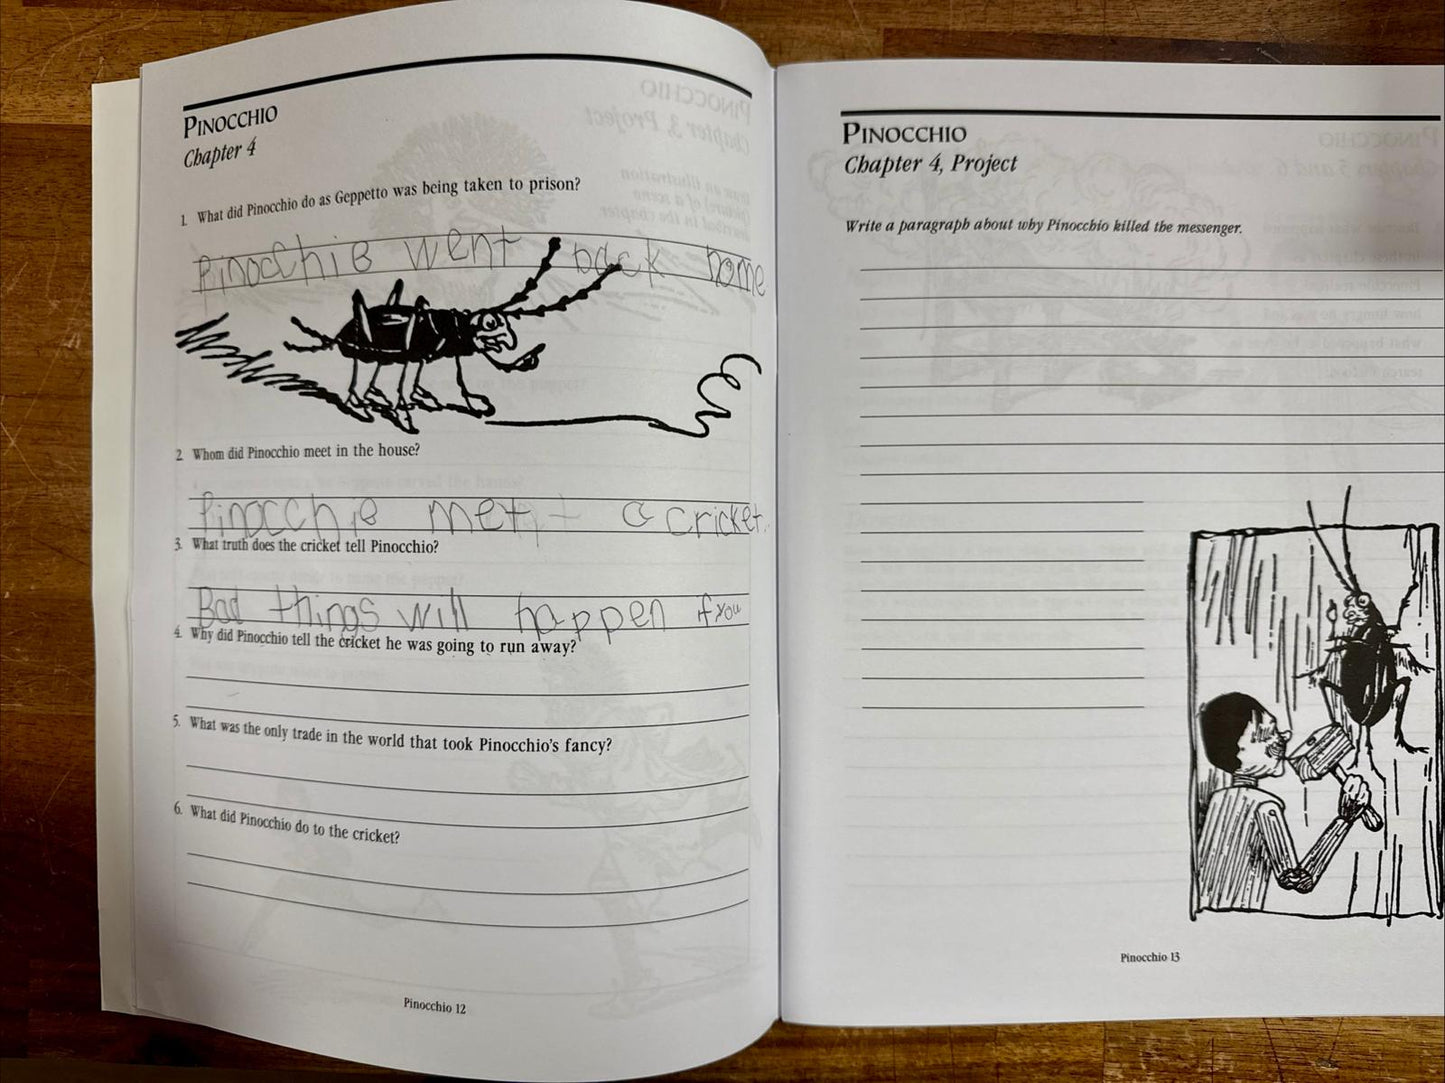 PINOCCHIO
Chapter 4
1. What did Pinocchio do as Geppetto was being taken to prison?
Pinocchio went back home
2. Whom did Pinocchio meet in the house?
Pinocchio met a cricket.
3. What truth does the cricket tell Pinocchio?
Bad things will happen if you
4. Why did Pinocchio tell the cricket he was going to run away?
5. What was the only trade in the world that took Pinocchio's fancy?
6. What did Pinocchio do to the cricket?
Pinocchio 12
PINOCCHIO
Chapter 4, Project
Write a paragraph about why Pinocchio killed the messenger.
Pinocchio 13